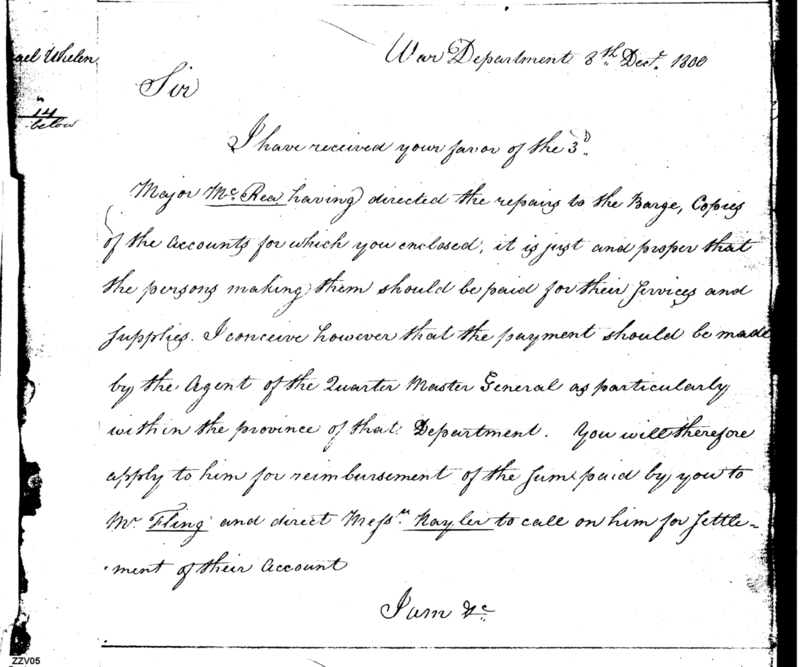 ael Whelen
14
below
War Department 8th Decr. 1800
Sir
I have received your favor of the 3d.
Major Mc. Rea having directed the repairs to the Barge, Copies
of the accounts for which you enclosed, it is just and proper that
the persons making them should be paid for their services and
supplies. I conceive however that the payment should be made
by the Agent of the Quarter Master General as particularly
within the province of that Department. You will therefore
apply to him for reimbursement of the sum paid by you to
Mr. Fling and direct Messrs. Nayler to call on him for settle-
ment of their account
I am &c
ZZV05